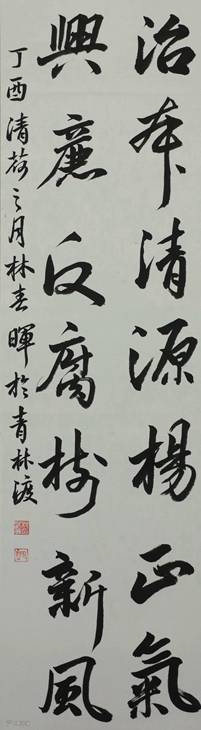 治本清源楊正氣
興廉反腐樹新風
丁酉清荷之月林春暉於青林渡